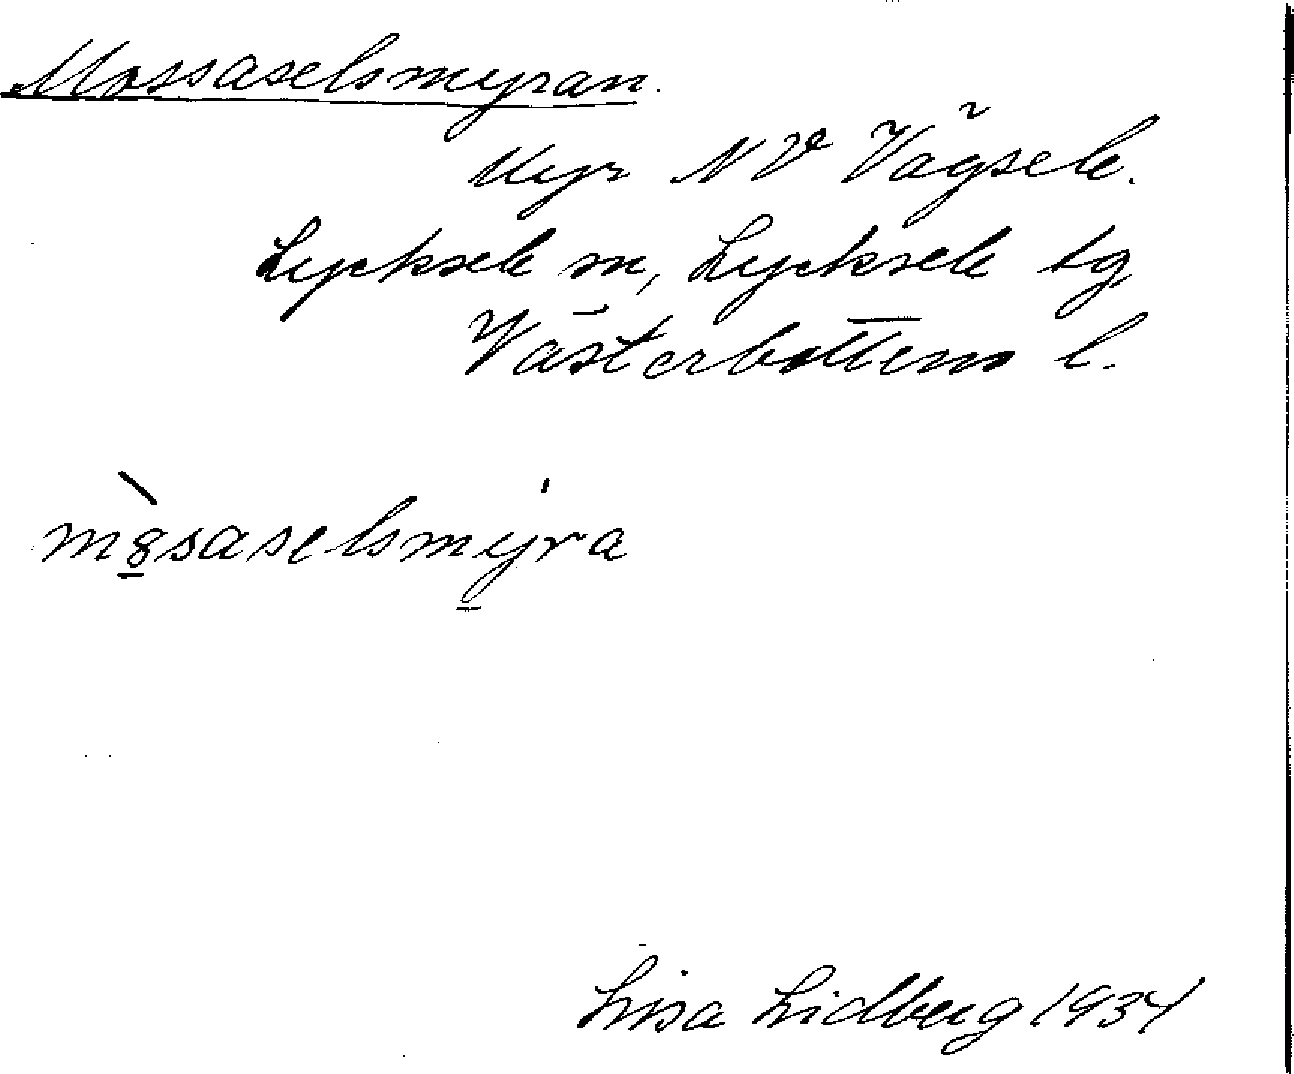 Mossaselsmyran.
Myr NV Vägsele.
Lycksele sn, Lycksele tg
Västerbottens l.
Lisa Lidberg 1934